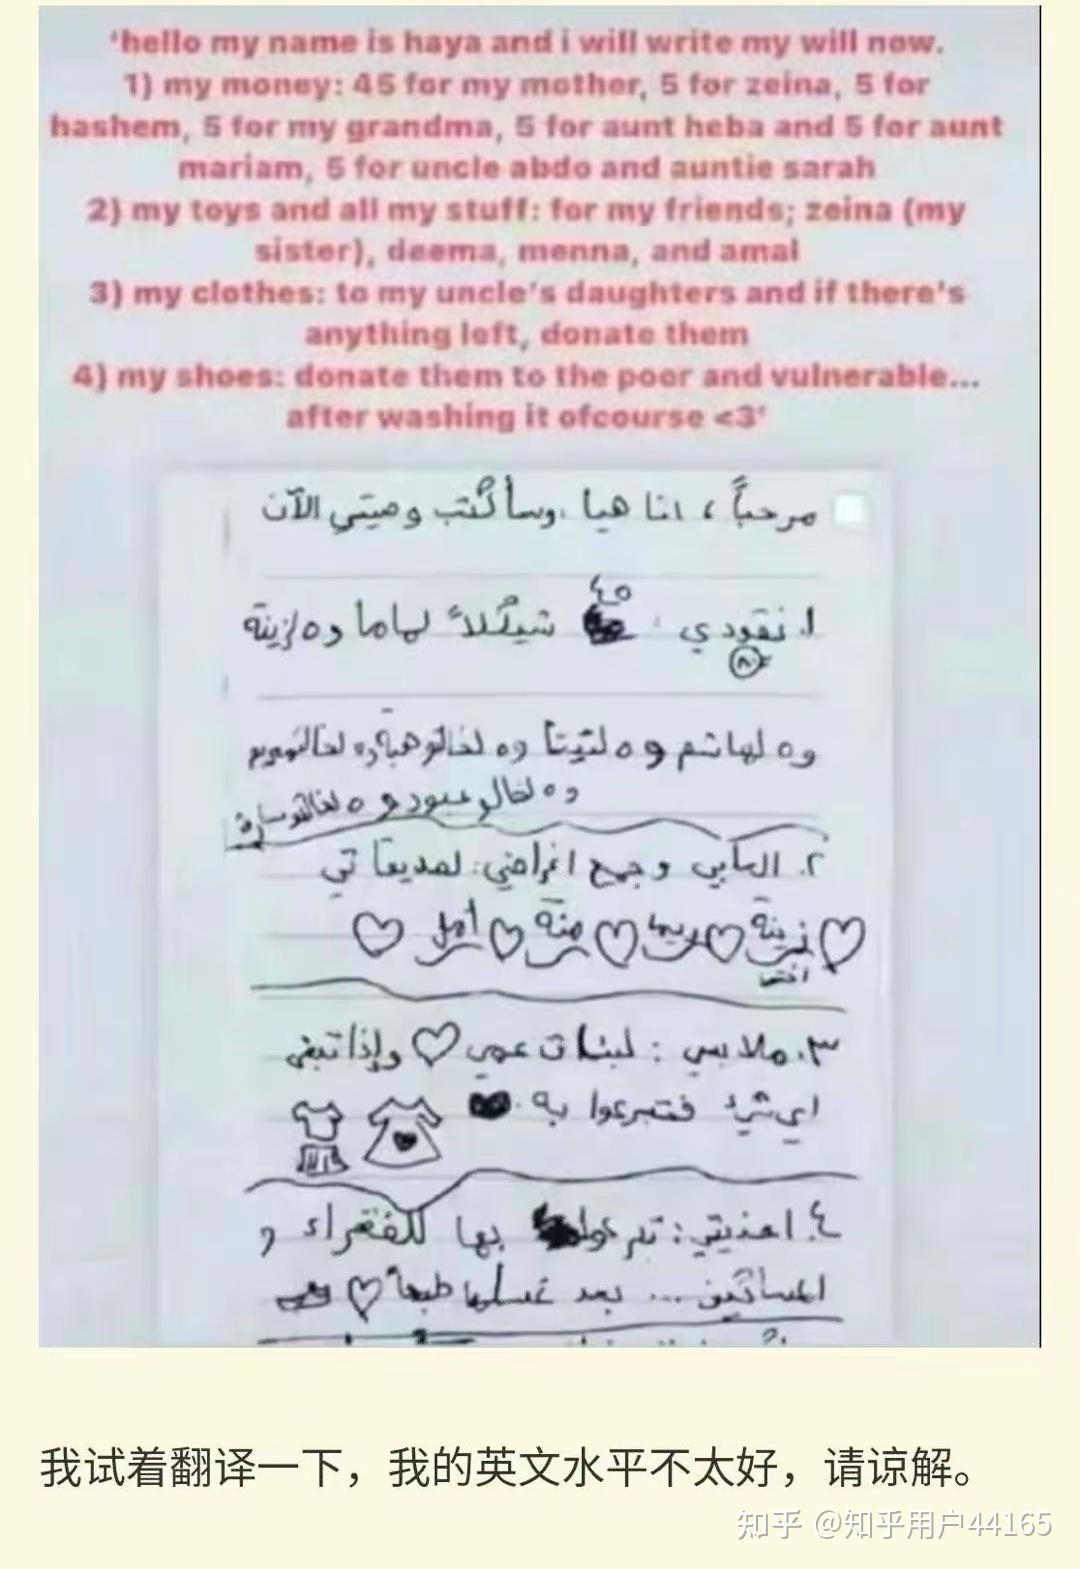 'hello my name is haya and i will write my will now.
1) my money: 45 for my mother, 5 for zeina, 5 for
hashem, 5 for my grandma, 5 for aunt heba and 5 for aunt
mariam, 5 for uncle abdo and auntie sarah
2) my toys and all my stuff: for my friends; zeina (my
sister), deema, menna, and amal
3) my clothes: to my uncle's daughters and if there's
anything left, donate them
4) my shoes: donate them to the poor and vulnerable...
after washing it ofcourse <3'
مرحباً، انا هيا وسأكتب وصيتي الآن
٤٥
١. نقودي : شيكلاً لماما و ٥ لزينة
و ٥ لهاشم و ٥ لتيتا و ٥ لخالتو هبة و ٥ لخالتو مريم
و ٥ لخالو عبود و ٥ لخالتو سارة
٢. العابي وجميع اغراضي: لصديقاتي
زينة ♡ ريما ♡ منة ♡ أمل ♡
اختي
٣. ملابسي : لبنات عمي ♡ وإذا تبقى
اي شيء فتبرعوا به
٤. احذيتي: تبرعوا بها للفقراء و
المساكين ... بعد غسلها طبعاً ♡
我试着翻译一下，我的英文水平不太好，请谅解。
知乎 @知乎用户44165